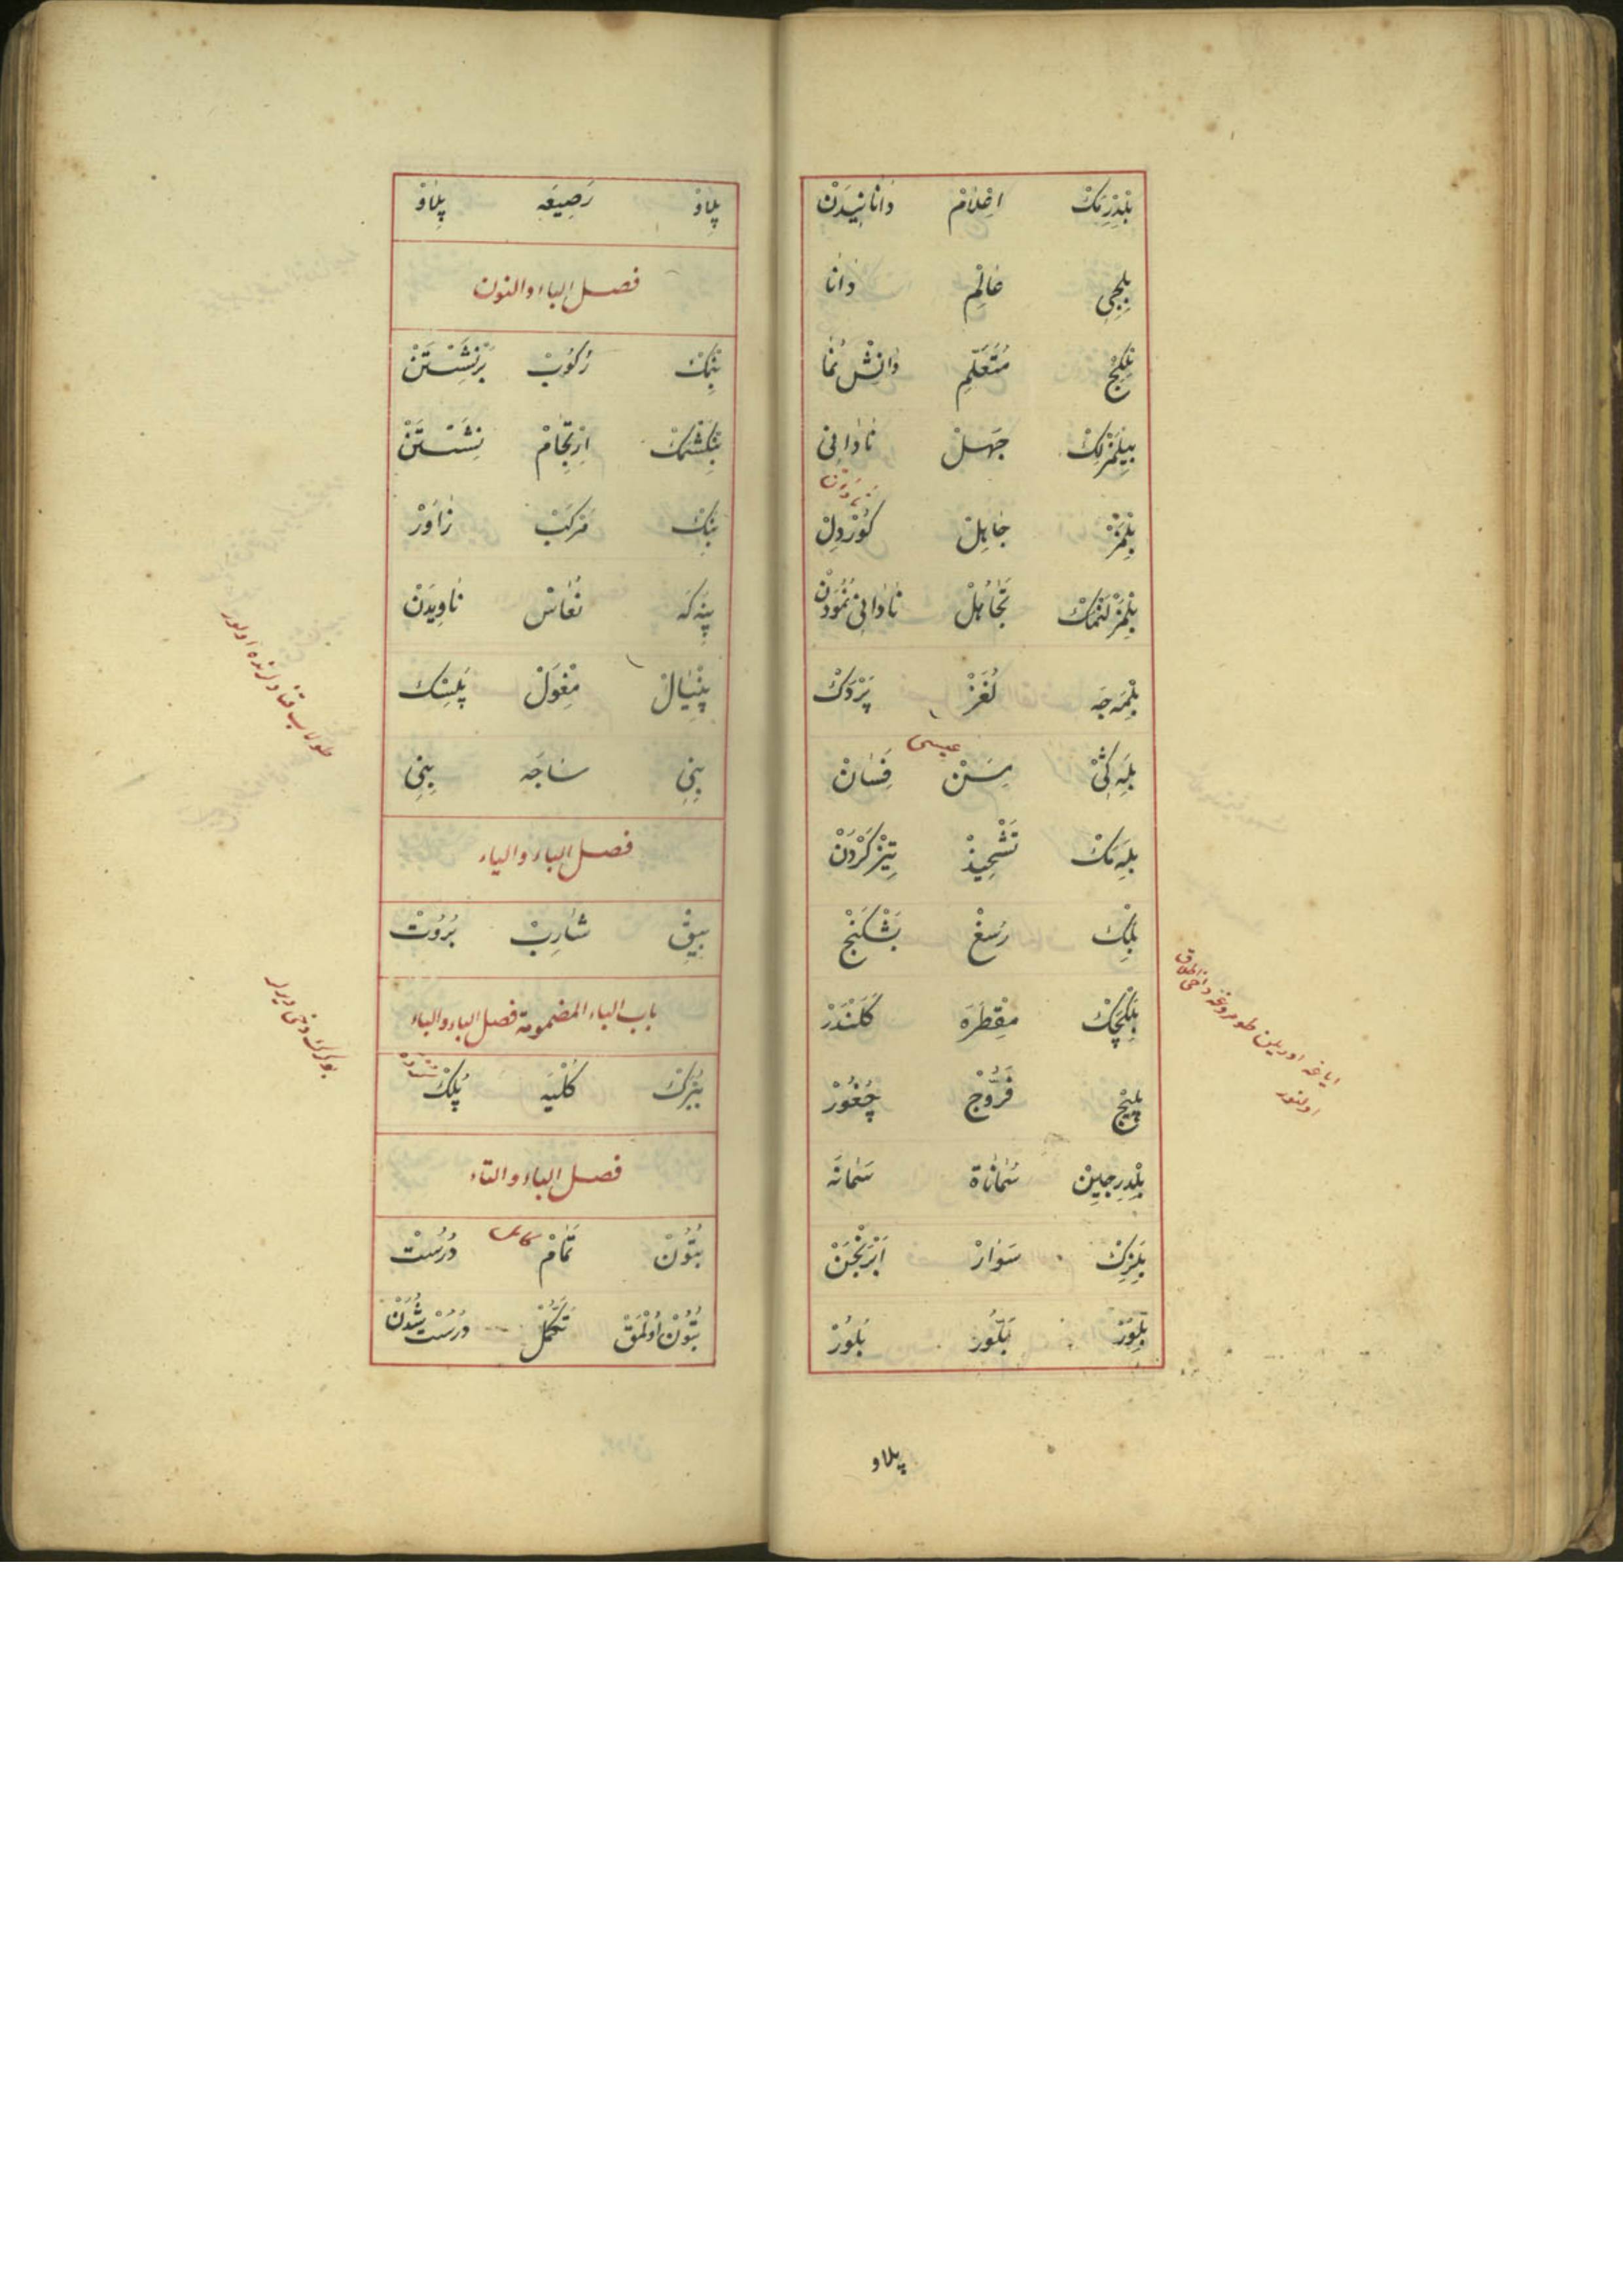 بِلْدِرْمَكْ اِعْلَامْ دَانَانِيدَنْ
بِلِجِی عَالِمْ دَانَا
بِلْكِجْ مُتَعَلِّمْ دَانِشْ نُمَا
بِيلْمَزْلِكْ جَهِلْ نَادَانِی
بِلْمَزْ جَاهِلْ كُورْدِلْ
بِلْمَزْلَنْمَكْ تَجَاهُلْ نَادَانِی نُمُودَنْ
بِلْمَجَه لُغَزْ پَرْدَكْ
عیسی
بِلَه كِی مِسَنْ فَسَانْ
بِلَه مَكْ تَشْحِيذْ تِيزْ كَرْدَنْ
بِلِكْ رُسْغْ بَشْكَنْجْ
بِلِكْچَكْ مِقْطَرَه كَلَنْدَرْ
پِلِيجْ فَرُّوجْ چُغُورْ
بِلْدِرْجِينْ سُمَانَاة سَمَانَه
بِلَزِكْ سَوَارْ اَبَرَنْجَنْ
بِلَّوُرْ بَلُّورْ بَلُورْ
ایاغه اوریلن طومروغه دخی اطلاق
اولنور
پلاو
پِلَاوْ رَصِيعَه پِلَاوْ
فصل الباء والنون
بِنْمَكْ رُكُوبْ بَرْنِشَسْتَنْ
بِنْكَشْمَكْ اِرْتِجَامْ نِشَسْتَنْ
بِنَكْ مَرْكَبْ زَاوَرْ
پِنَه كَه نُعَاسْ نَاوِيدَنْ
پِنِيَالْ مِغْوَلْ پَلَسْكْ
بِنِی سَاجَه بِنِی
فصل الباء والیاء
بِيِقْ شَارِبْ بُرُوتْ
باب الباء المضمومة فصل الباء والباء
بُبْرَكْ كُلْيَه پُلكْ
فصل الباء والتاء
بُتُونْ تَمَامْ كامل دُرُسْت
بُتُونْ اُولْمَقْ تَكَمُّلْ دُرُسْت شُدَنْ
بوكرك دخی دیرلر